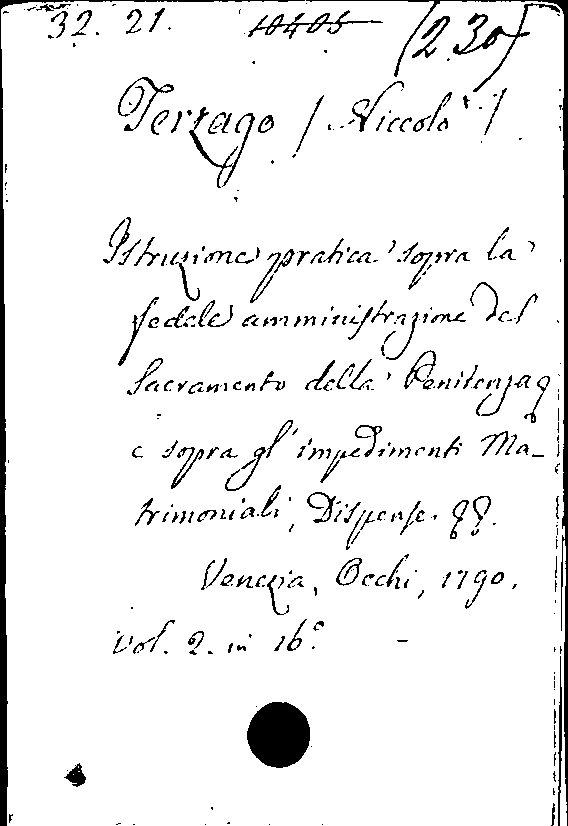 32. 21. 10405 (230)
Terzago / Niccolò /
Istruzione pratica sopra la
fedele amministrazione del
Sacramento della Penitenza
e sopra gl'impedimenti Ma-
trimoniali, Dispense.
Venezia, Occhi, 1790.
vol. 2. in 16.° -